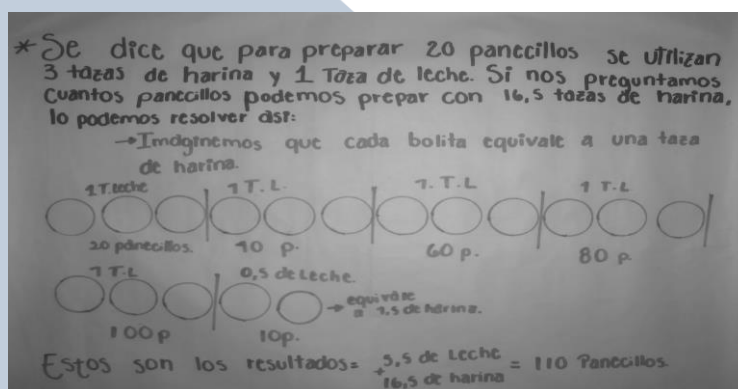 *Se dice que para preparar 20 panecillos se utilizan
3 tazas de harina y 1 Taza de leche. Si nos preguntamos
cuantos panecillos podemos prepar con 16,5 tazas de harina,
lo podemos resolver así:
→Imaginemos que cada bolita equivale a una taza
de harina.
1 T. leche 1 T. L. 1. T. L 1 T. L
20 panecillos. 40 p. 60 p. 80 p
1 T. L 0,5 de Leche
→ equivale
a 1,5 de harina.
100 p 10p.
Estos son los resultados= 5,5 de Leche = 110 Panecillos.
+ 16,5 de harina